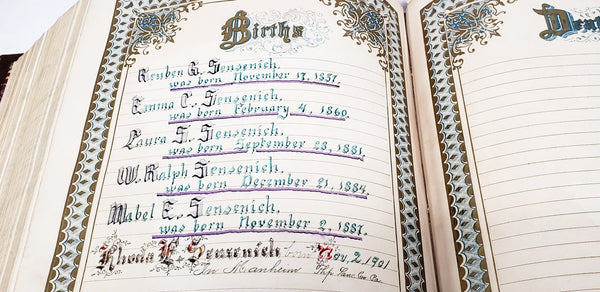 Births
Reuben G. Sensenich,
was born November 17, 1857.
Emma C. Sensenich,
was born February 4, 1860.
Laura S. Sensenich,
was born September 28, 1881.
W. Ralph Sensenich,
was born December 21, 1884.
Mabel E. Sensenich,
was born November 2, 1887.
Rhoda E. Sensenich born Nov, 2, 1901
In Manheim Twp Lanc. Co. Pa.